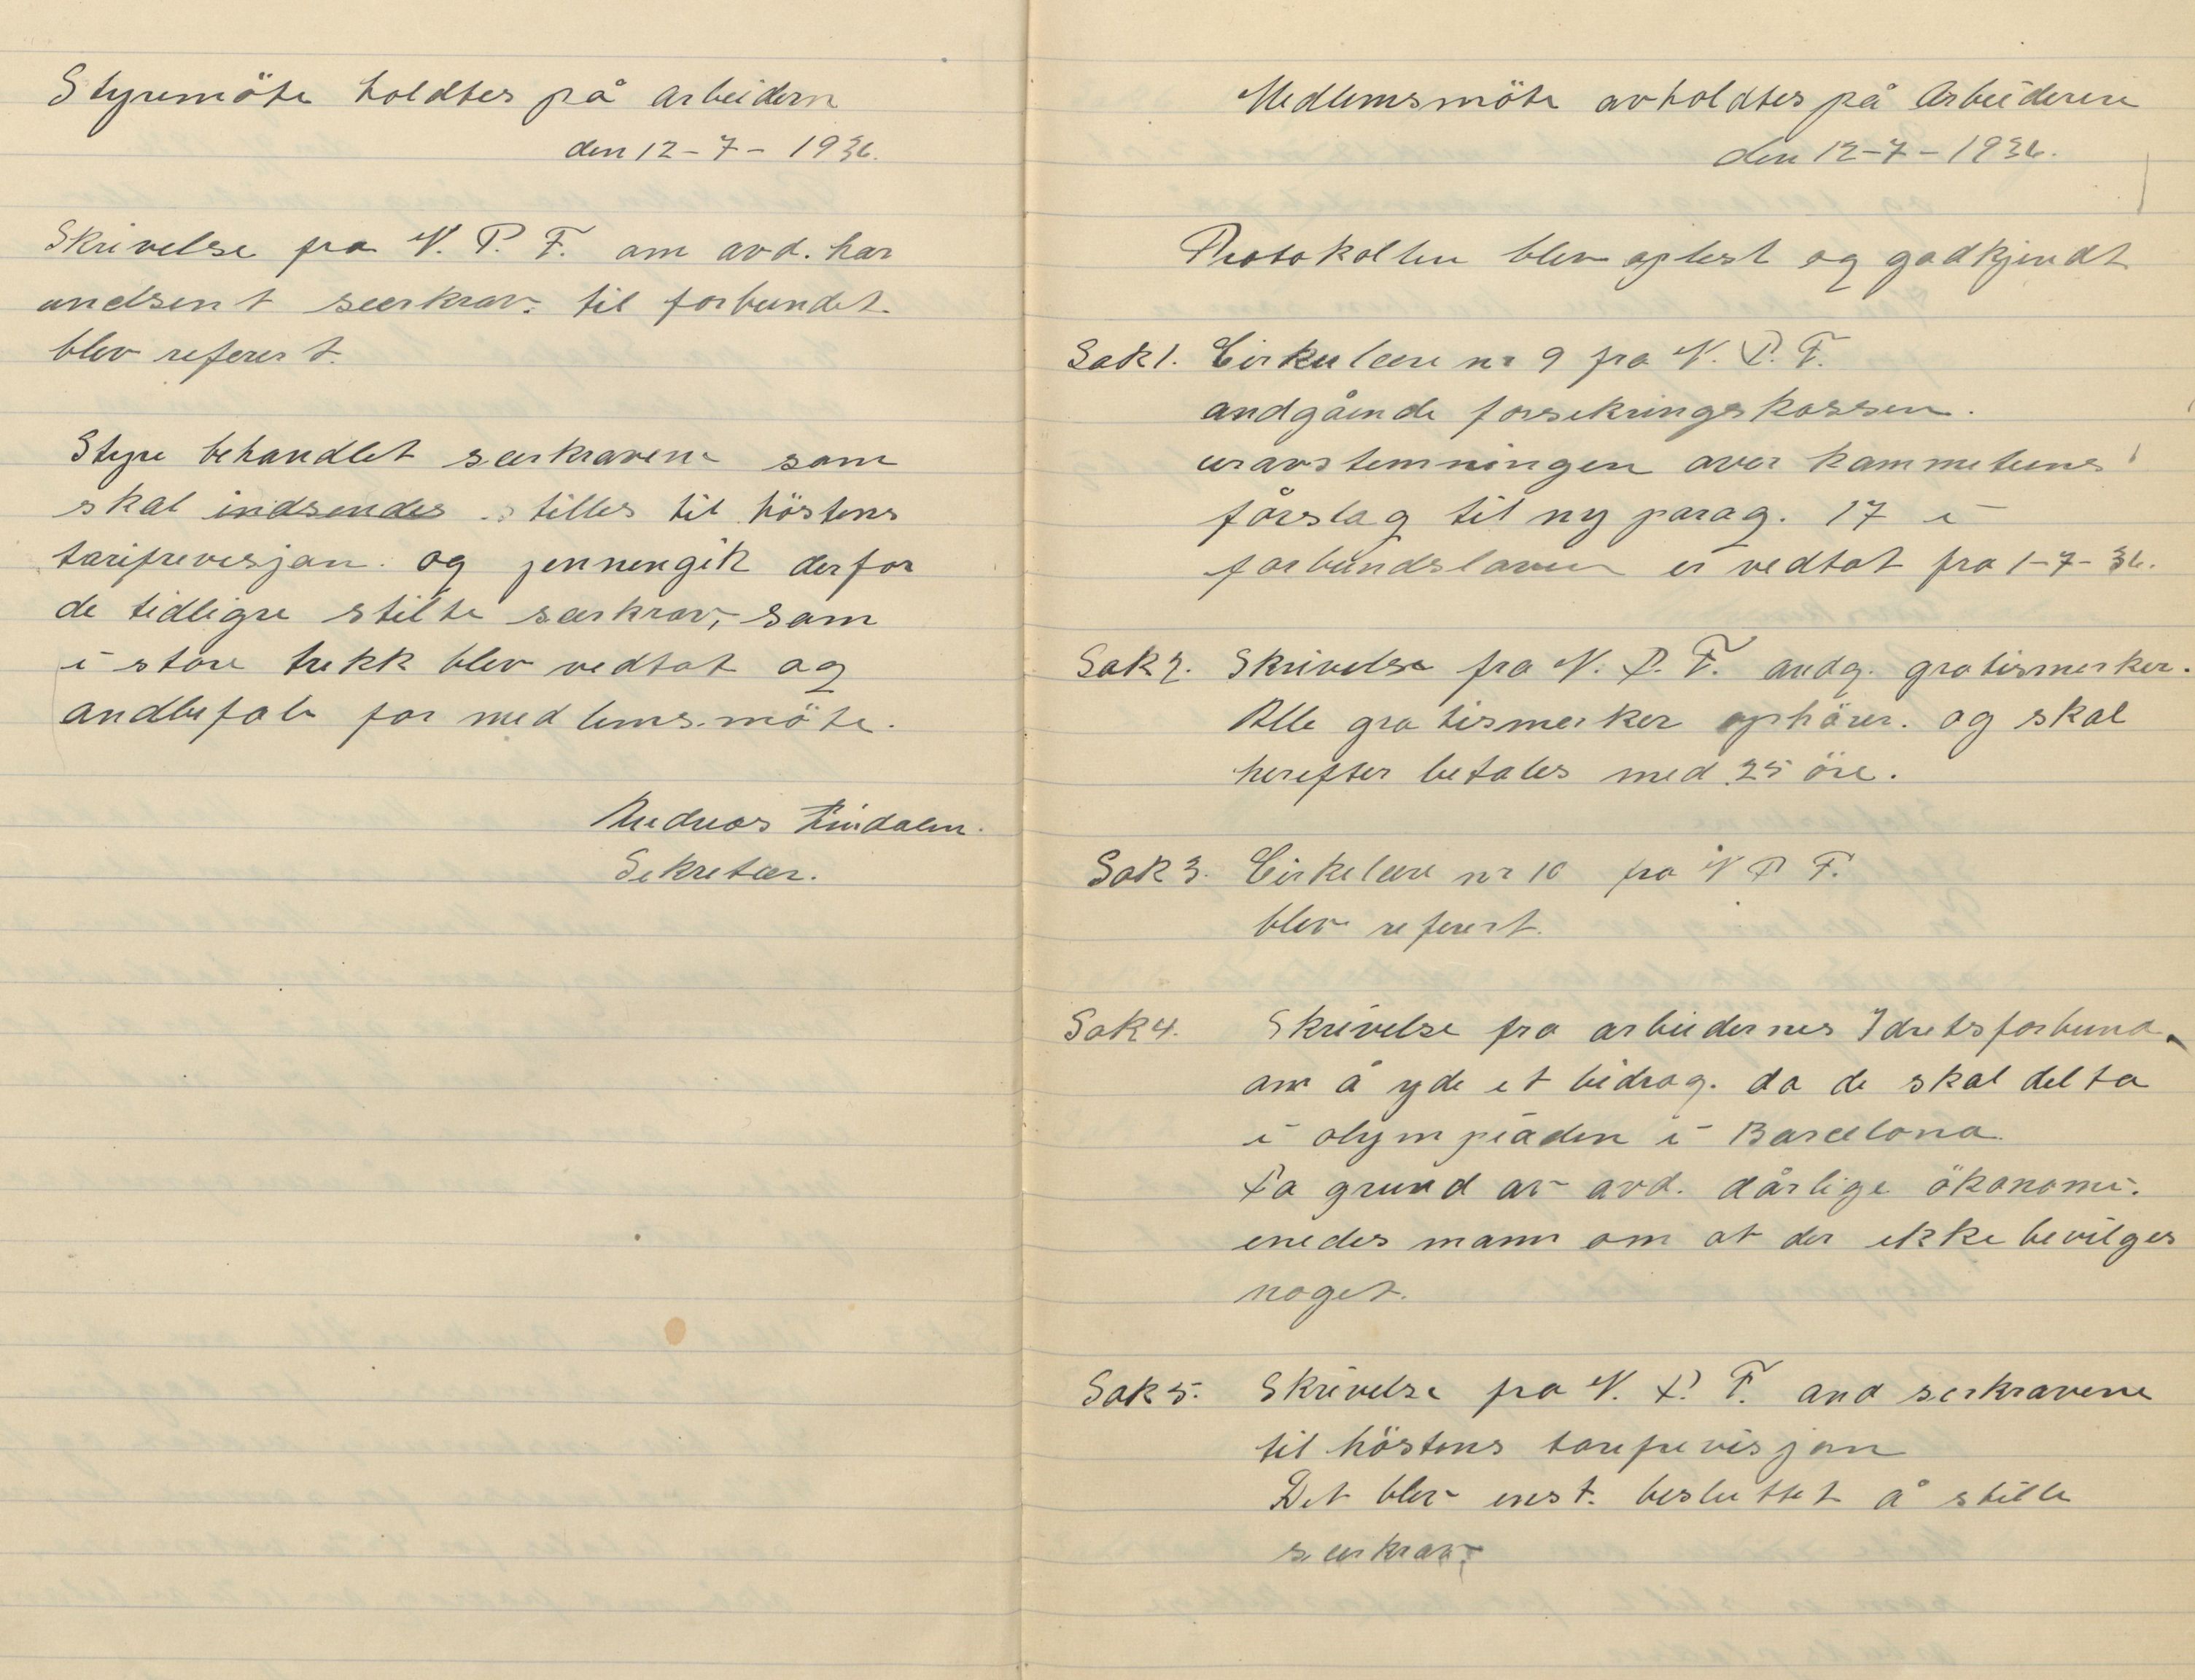 Styremöte holdtes på arbeidern
den 12-7-1936.
Skrivelse fra N. P. F. om avd. har
andsent særkrav. til forbundet.
blev referert.
Styre behandlet særkravene som
skal indsendes stilles til höstens
tarifrevisjon. og jennengik derfor
de tidligre stilte særkrav, som
i store trekk blev vedtat og
andbefale for medlemsmöte.
Andreas Lindalen.
Sekretær.
Medlemsmöte avholdtes på Arbeideren
den 12-7-1936.
Protokollen blev oplest og godkjendt
Sak 1. Cirkulære nr 9 fra N. P. F.
andgående forsekringskassen.
uravstemningen over kommeteens
fårslag til ny parag. 17 i
forbundsloven er vedtat fra 1-7-36.
Sak 2. Skrivelse fra N. P. F. andg. gratismerker.
Alle gratismerker ophörer. og skal
herefter betales med 25 öre.
Sak 3. Cirkelære nr 10 fra N P F.
blev referert.
Sak 4. Skrivelse fra arbeidernes Idretsforbund.
om å yde et bidrag. da de skal delta
i olympiaden i Barcelona.
Pa grund av avd. dårlige ökonomi.
enedes mann om at der ikke bevilges
noget.
Sak 5. Skrivelse fra N. P. F. and serkravene
til höstens tarifrevisjon
Det blev enst. besluttet å stille
særkrav.